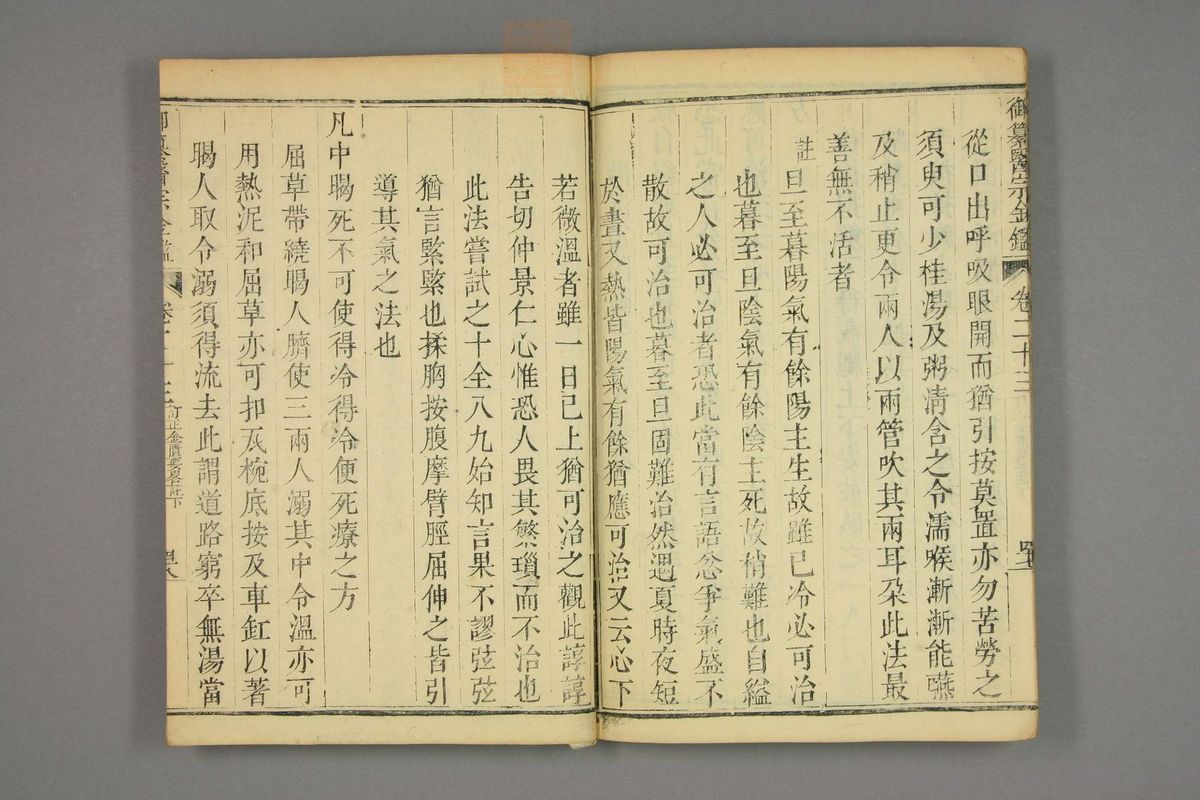 御纂醫宗金鑑 卷二十三
從口出呼吸眼開而猶引按莫置亦勿苦勞之
須臾可少桂湯及粥清含之令濡喉漸漸能嚥
及稍止更令兩人以兩管吹其兩耳朶此法最
善無不活者
註旦至暮陽氣有餘陽主生故雖已冷必可治
也暮至旦陰氣有餘陰主死故稍難也自縊
之人必可治者恐此當有言語忿爭氣盛不
散故可治也暮至旦固難治然遇夏時夜短
於晝又熱皆陽氣有餘猶應可治又云心下
若微溫者雖一日已上猶可治之觀此諄諄
告切仲景仁心惟恐人畏其繁瑣而不治也
此法嘗試之十全八九始知言果不謬弦弦
猶言緊緊也揉胸按腹摩臂脛屈伸之皆引
導其氣之法也
凡中暍死不可使得冷得冷便死療之方
屈草帶繞暍人臍使三兩人溺其中令溫亦可
用熱泥和屈草亦可扣瓦椀底按及車缸以著
暍人取令溺須得流去此謂道路窮卒無湯當
訂正金匱要畧註下